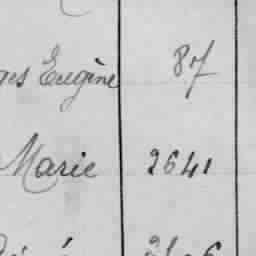 ges Eugène 87
Marie 2641